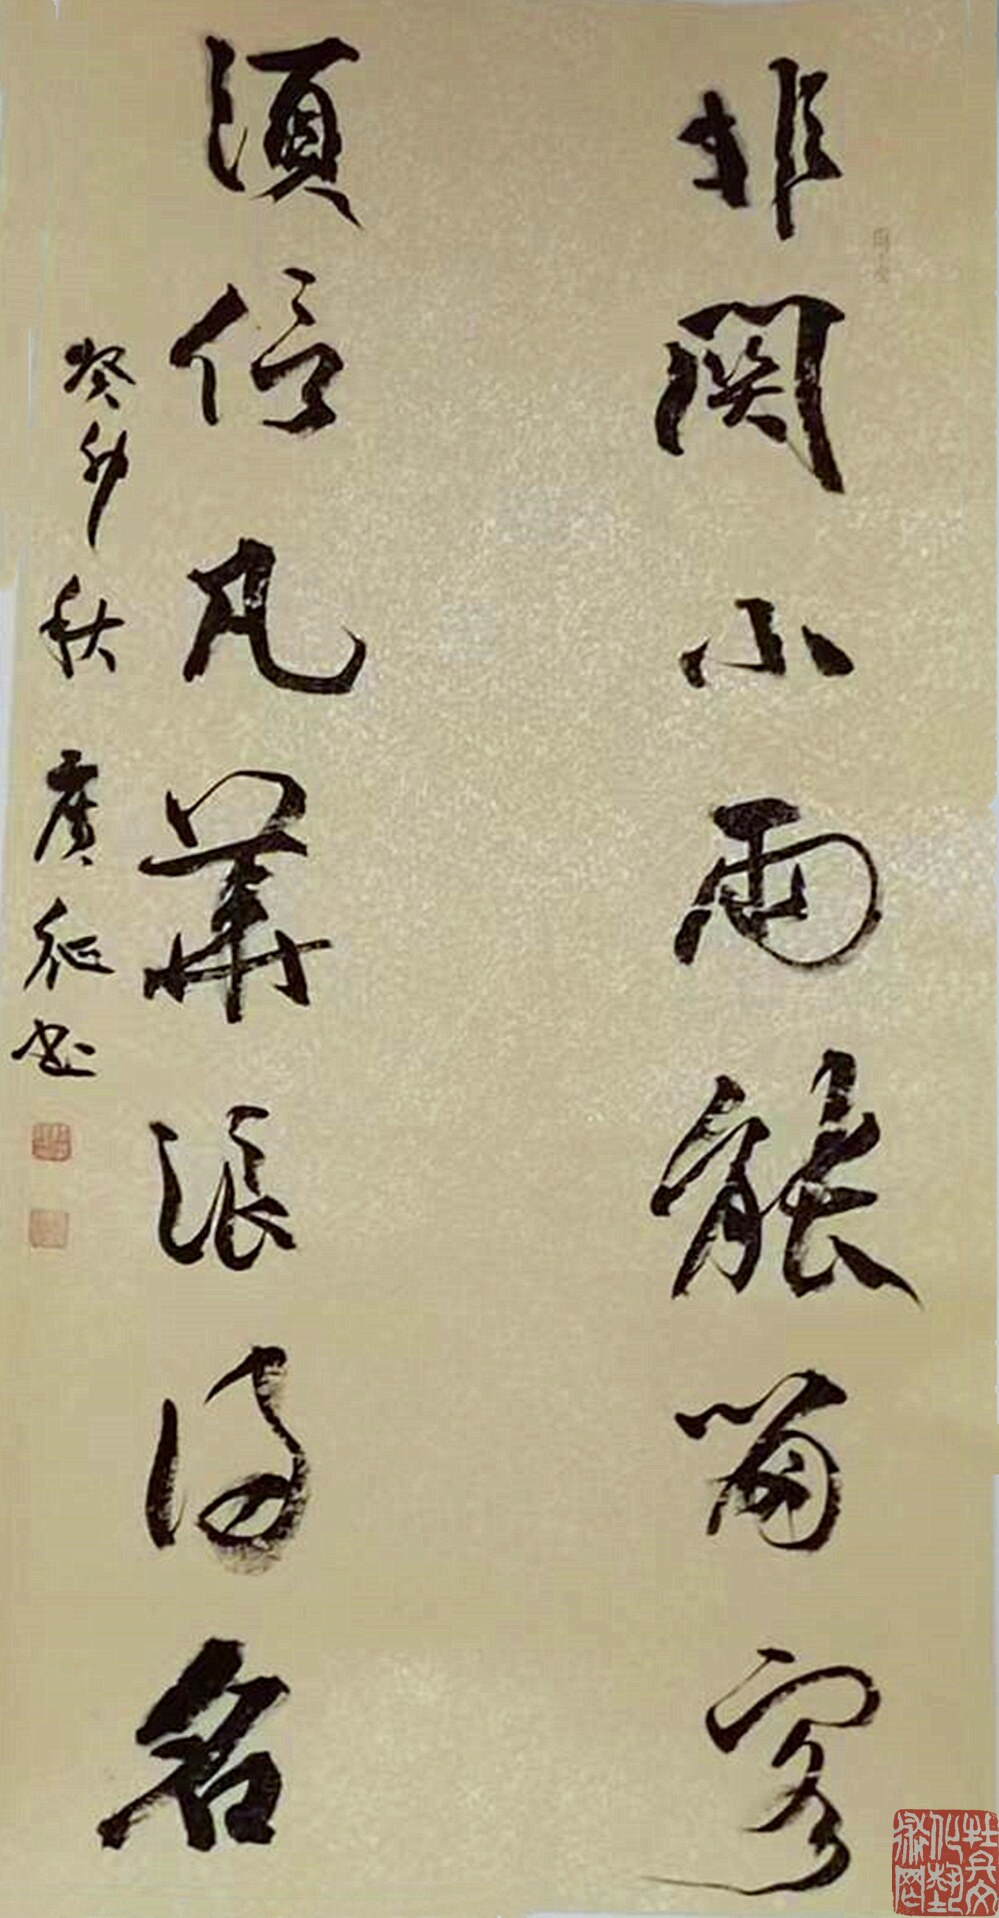 非関小雨能留客
須信凡華浪得名
癸卯秋廣征書